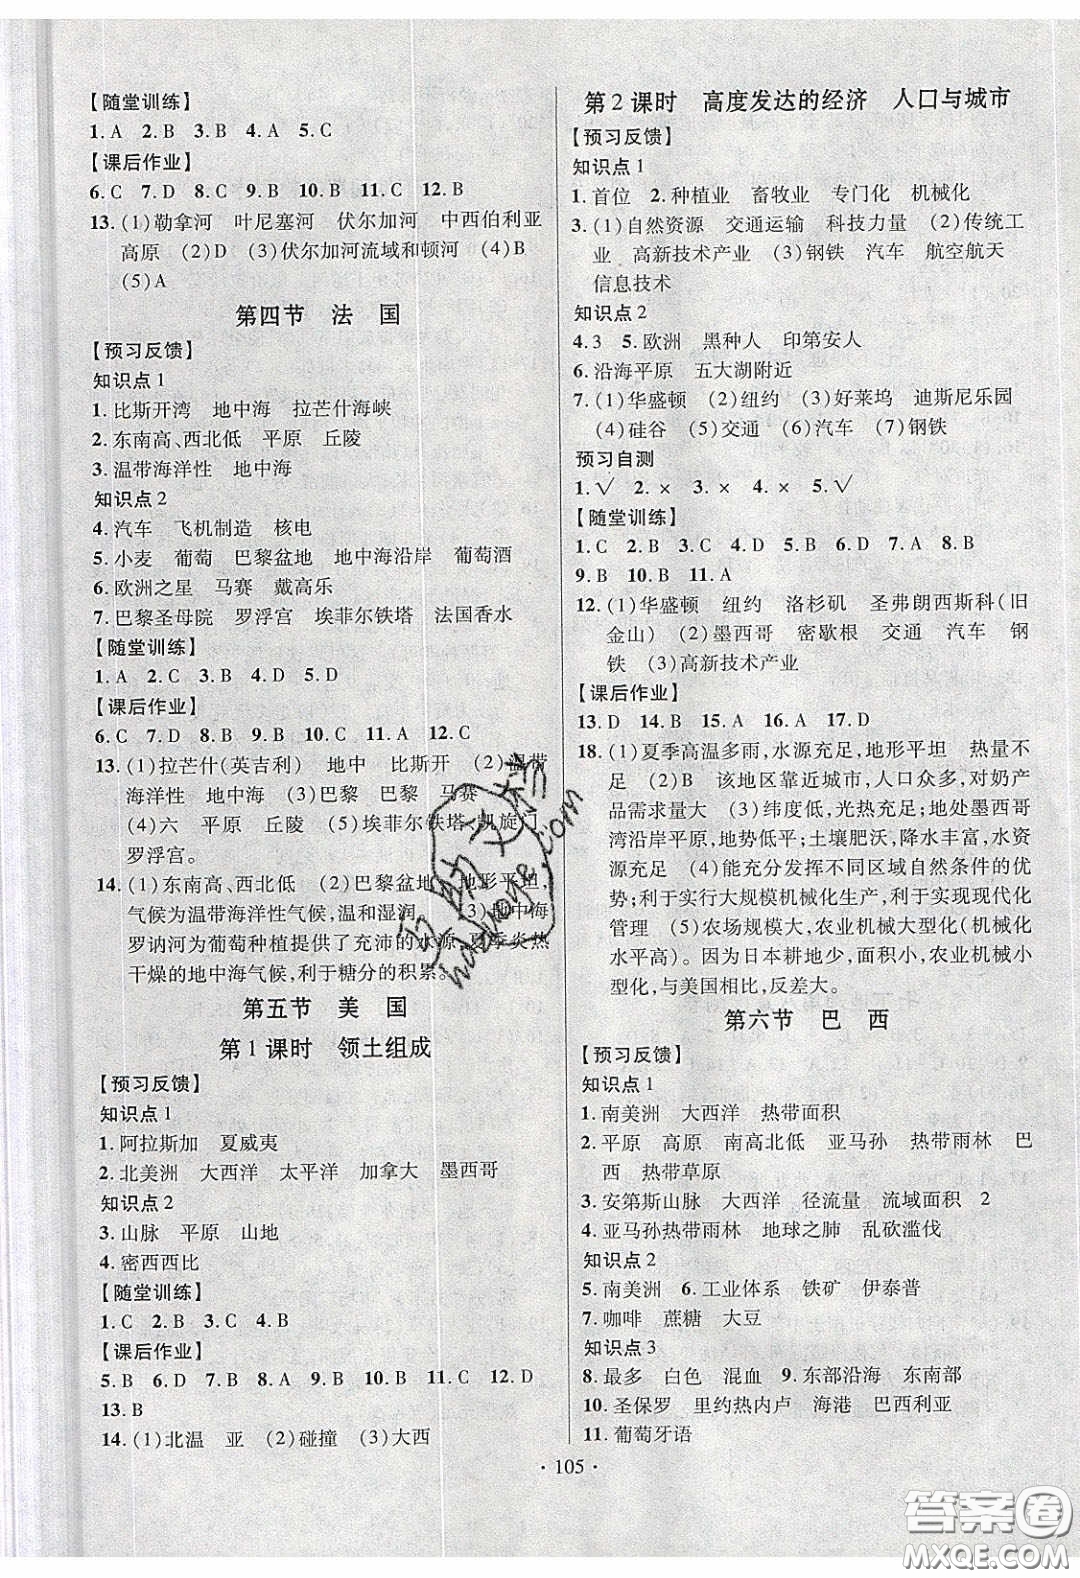 【随堂训练】
1.A 2.B 3.B 4.A 5.C
【课后作业】
6.C 7.D 8.C 9.B 10.B 11.C 12.B
13.(1)勒拿河 叶尼塞河 伏尔加河 中西伯利亚
高原 (2)D (3)伏尔加河流域和顿河 (4)B
(5)A
第四节 法 国
【预习反馈】
知识点1
1.比斯开湾 地中海 拉芒什海峡
2.东南高、西北低 平原 丘陵
3.温带海洋性 地中海
知识点2
4.汽车 飞机制造 核电
5.小麦 葡萄 巴黎盆地 地中海沿岸 葡萄酒
6.欧洲之星 马赛 戴高乐
7.巴黎圣母院 罗浮宫 埃菲尔铁塔 法国香水
【随堂训练】
1.A 2.C 3.B 4.D 5.D
【课后作业】
6.C 7.D 8.D 9.B 10.B 11.A 12.C
13.(1)拉芒什(英吉利) 地中 比斯开 (2)温带
海洋性 地中海 (3)巴黎 巴黎 马赛
(4)六 平原 丘陵 (5)埃菲尔铁塔 凯旋门
罗浮宫。
14.(1)东南高、西北低 (2)巴黎盆地 地形平坦,
气候为温带海洋性气候,温和湿润 (3)地中海
罗讷河为葡萄种植提供了充沛的水源,夏季炎热
干燥的地中海气候,利于糖分的积累。
第五节 美 国
第1课时 领土组成
【预习反馈】
知识点1
1.阿拉斯加 夏威夷
2.北美洲 大西洋 太平洋 加拿大 墨西哥
知识点2
3.山脉 平原 山地
4.密西西比
【随堂训练】
1.C 2.B 3.C 4.B
【课后作业】
5.B 6.D 7.D 8.B 9.B 10.C 11.C 12.D
13.B
14.(1)北温 亚 (2)碰撞 (3)大西
第2课时 高度发达的经济 人口与城市
【预习反馈】
知识点1
1.首位 2.种植业 畜牧业 专门化 机械化
3.(1)自然资源 交通运输 科技力量 (2)传统工
业 高新技术产业 (3)钢铁 汽车 航空航天
信息技术
知识点2
4.3 5.欧洲 黑种人 印第安人
6.沿海平原 五大湖附近
7.(1)华盛顿 (2)纽约 (3)好莱坞 迪斯尼乐园
(4)硅谷 (5)交通 (6)汽车 (7)钢铁
预习自测
1.√ 2.× 3.× 4.× 5.√
【随堂训练】
1.C 2.B 3.A 4.B 5.D 6.D 7.A 8.C
9.B 10.B 11.A
12.(1)华盛顿 纽约 洛杉矶 圣弗朗西斯科(旧
金山) (2)墨西哥 密歇根 交通 汽车 钢
铁 (3)高新技术产业
【课后作业】
13.D 14.B 15.A 16.A 17.D
18.(1)夏季高温多雨,水源充足,地形平坦 热量不
足 (2)B 该地区靠近城市,人口众多,对奶产
品需求量大 (3)纬度低,光热充足;地处墨西哥
湾沿岸平原,地势低平;土壤肥沃,降水丰富,水资
源充足 (4)能充分发挥不同区域自然条件的优
势;利于实行大规模机械化生产,利于实现现代化
管理 (5)农场规模大,农业机械大型化(机械化
水平高)。因为日本耕地少,面积小,农业机械小
型化,与美国相比,反差大。
第六节 巴 西
【预习反馈】
知识点1
1.南美洲 大西洋 热带面积
2.平原 高原 南高北低 亚马孙 热带雨林 巴
西 热带草原
3.安第斯山脉 大西洋 径流量 流域面积 2
4.亚马孙热带雨林 地球之肺 乱砍滥伐
知识点2
5.南美洲 6.工业体系 铁矿 伊泰普
7.咖啡 蔗糖 大豆
知识点3
8.最多 白色 混血 9.东部沿海 东南部
10.圣保罗 里约热内卢 海港 巴西利亚
11.葡萄牙语
· 105 ·
答案圈
MXQE.COM